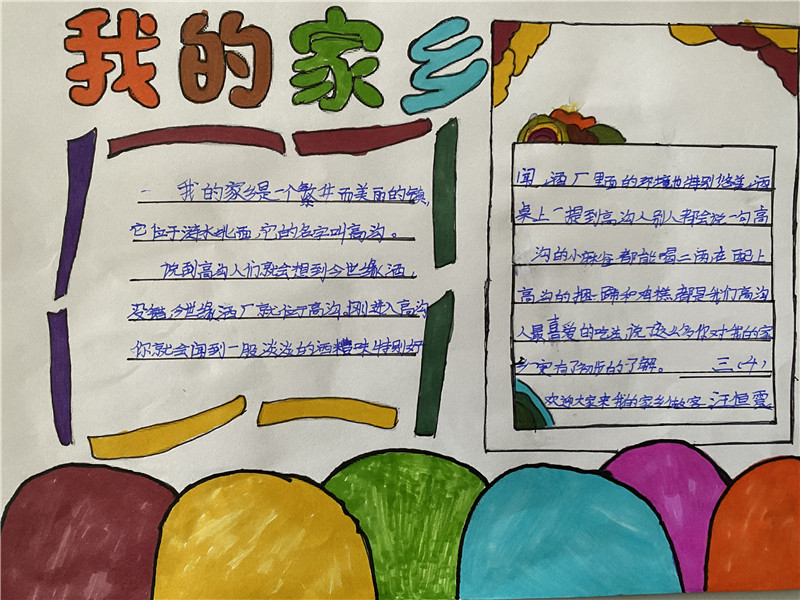 我的家乡
我的家乡是一个繁华而美丽的镇,
它位于涟水北西,它的名字叫高沟。
说到高沟人们就会想到今世缘酒,
没错今世缘酒厂就位于高沟,刚进入高沟
你就会闻到一股淡淡的酒糟味特别好
闻,酒厂里面的环境也特别优美,酒
桌上一提到高沟人别人都会说一句高
沟的小麻雀都能喝二两在配上
高沟的捆蹄和鸡糕都是我们高沟
人最喜爱的吃法,说这么多你对我的家
乡更有了的了解。 三(4)
欢迎大家来我的家乡做客 汪恒